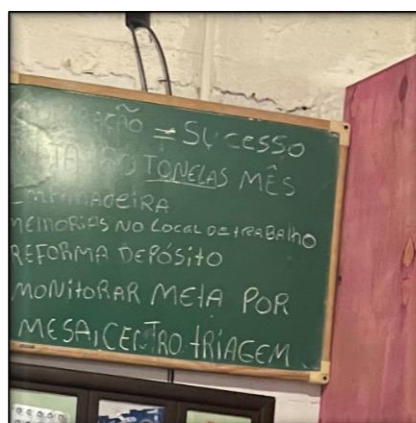 = SUCESSO
TONELAS MÊS
EMPILHADEIRA
MEMORIAS NO LOCAL DE TRABALHO
REFORMA DEPÓSITO
MONITORAR META POR
MESA, CENTRO TRIAGEM